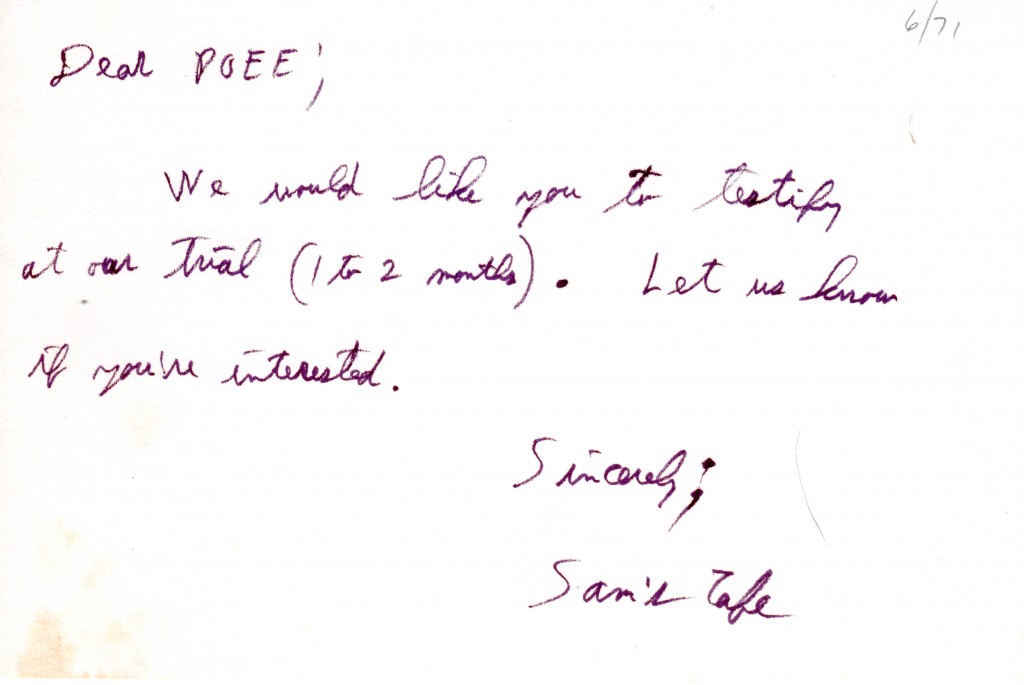 6/71
Dear POEE;
We would like you to testify
at our trial (1 to 2 months). Let us know
if you're interested.
Sincerely;
Sam's Cafe